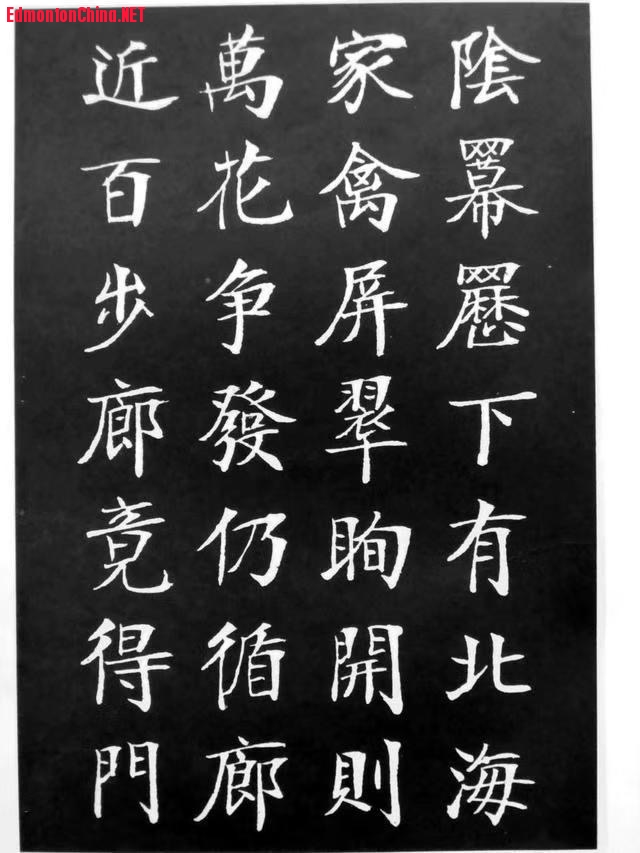 EdmontionChina.NET
陰羃䍥下有北海
家禽屏翠眴開則
萬花争發仍循廊
近百步廊竟得門